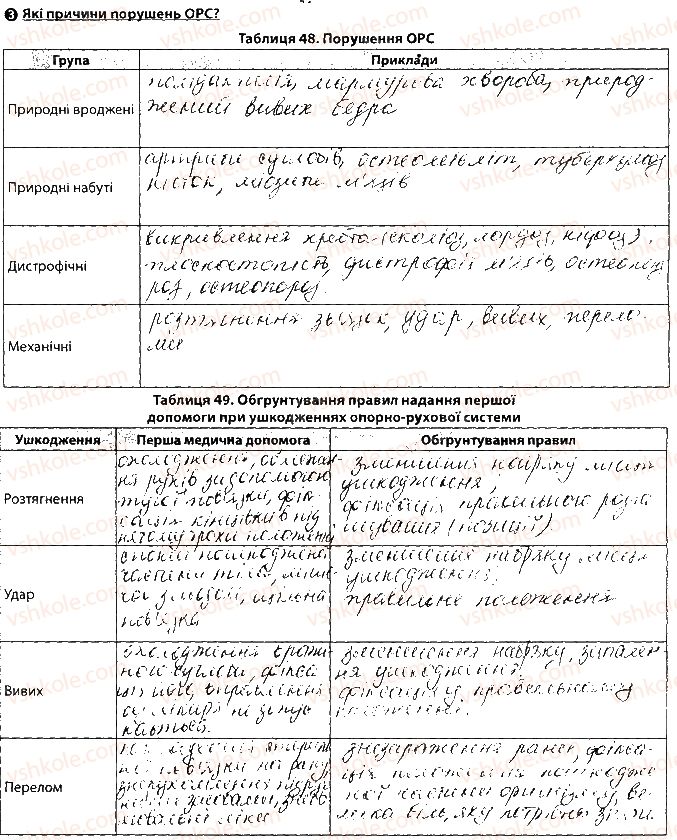 3 Які причини порушень ОРС?
Таблиця 48. Порушення ОРС
Група Приклади
Природні вроджені
полідактилія, мармурова хвороба, природ-
жений вивих бедра
Природні набуті
артрити суглобів, остеомієліт, туберкульоз
кісток, міозити м'язів
Дистрофічні
викривлення хребта (сколіоз, лордоз, кіфоз),
плоскостопість, дистрофії м'язів,
роз, остеопороз.
Механічні
розтягнення зв'язок, удар, вивих, перело-
ми
Таблиця 49. Обґрунтування правил надання першої
допомоги при ушкодженнях опорно-рухової системи
Ушкодження Перша медична допомога Обґрунтування правил
Розтягнення
охолодження, обмежен-
ня рухів за допомогою
тугої пов'язки, фік-
кінцівки в під-
нятому трохи положенні
зменшення набряку місця
ушкодження;
фіксація правильного розта-
шування (позиції)
Удар
спокій пошкодженої
частини тіла,
з льодом,
пов'язка
зменшення набряку місця
ушкодження;
правильне положення
Вивих
охолодження враже-
ного суглоба, фікса-
ція його, вправлення
не
зменшення набряку, запален-
ня ушкодження;
фіксація у правильному
положенні.
Перелом
пов'язки на рану,
знезараження рани, фікса-
ція положення пошкодже-
ної частини організму, ве-
лика біль, яку потрібно
vshkole.com